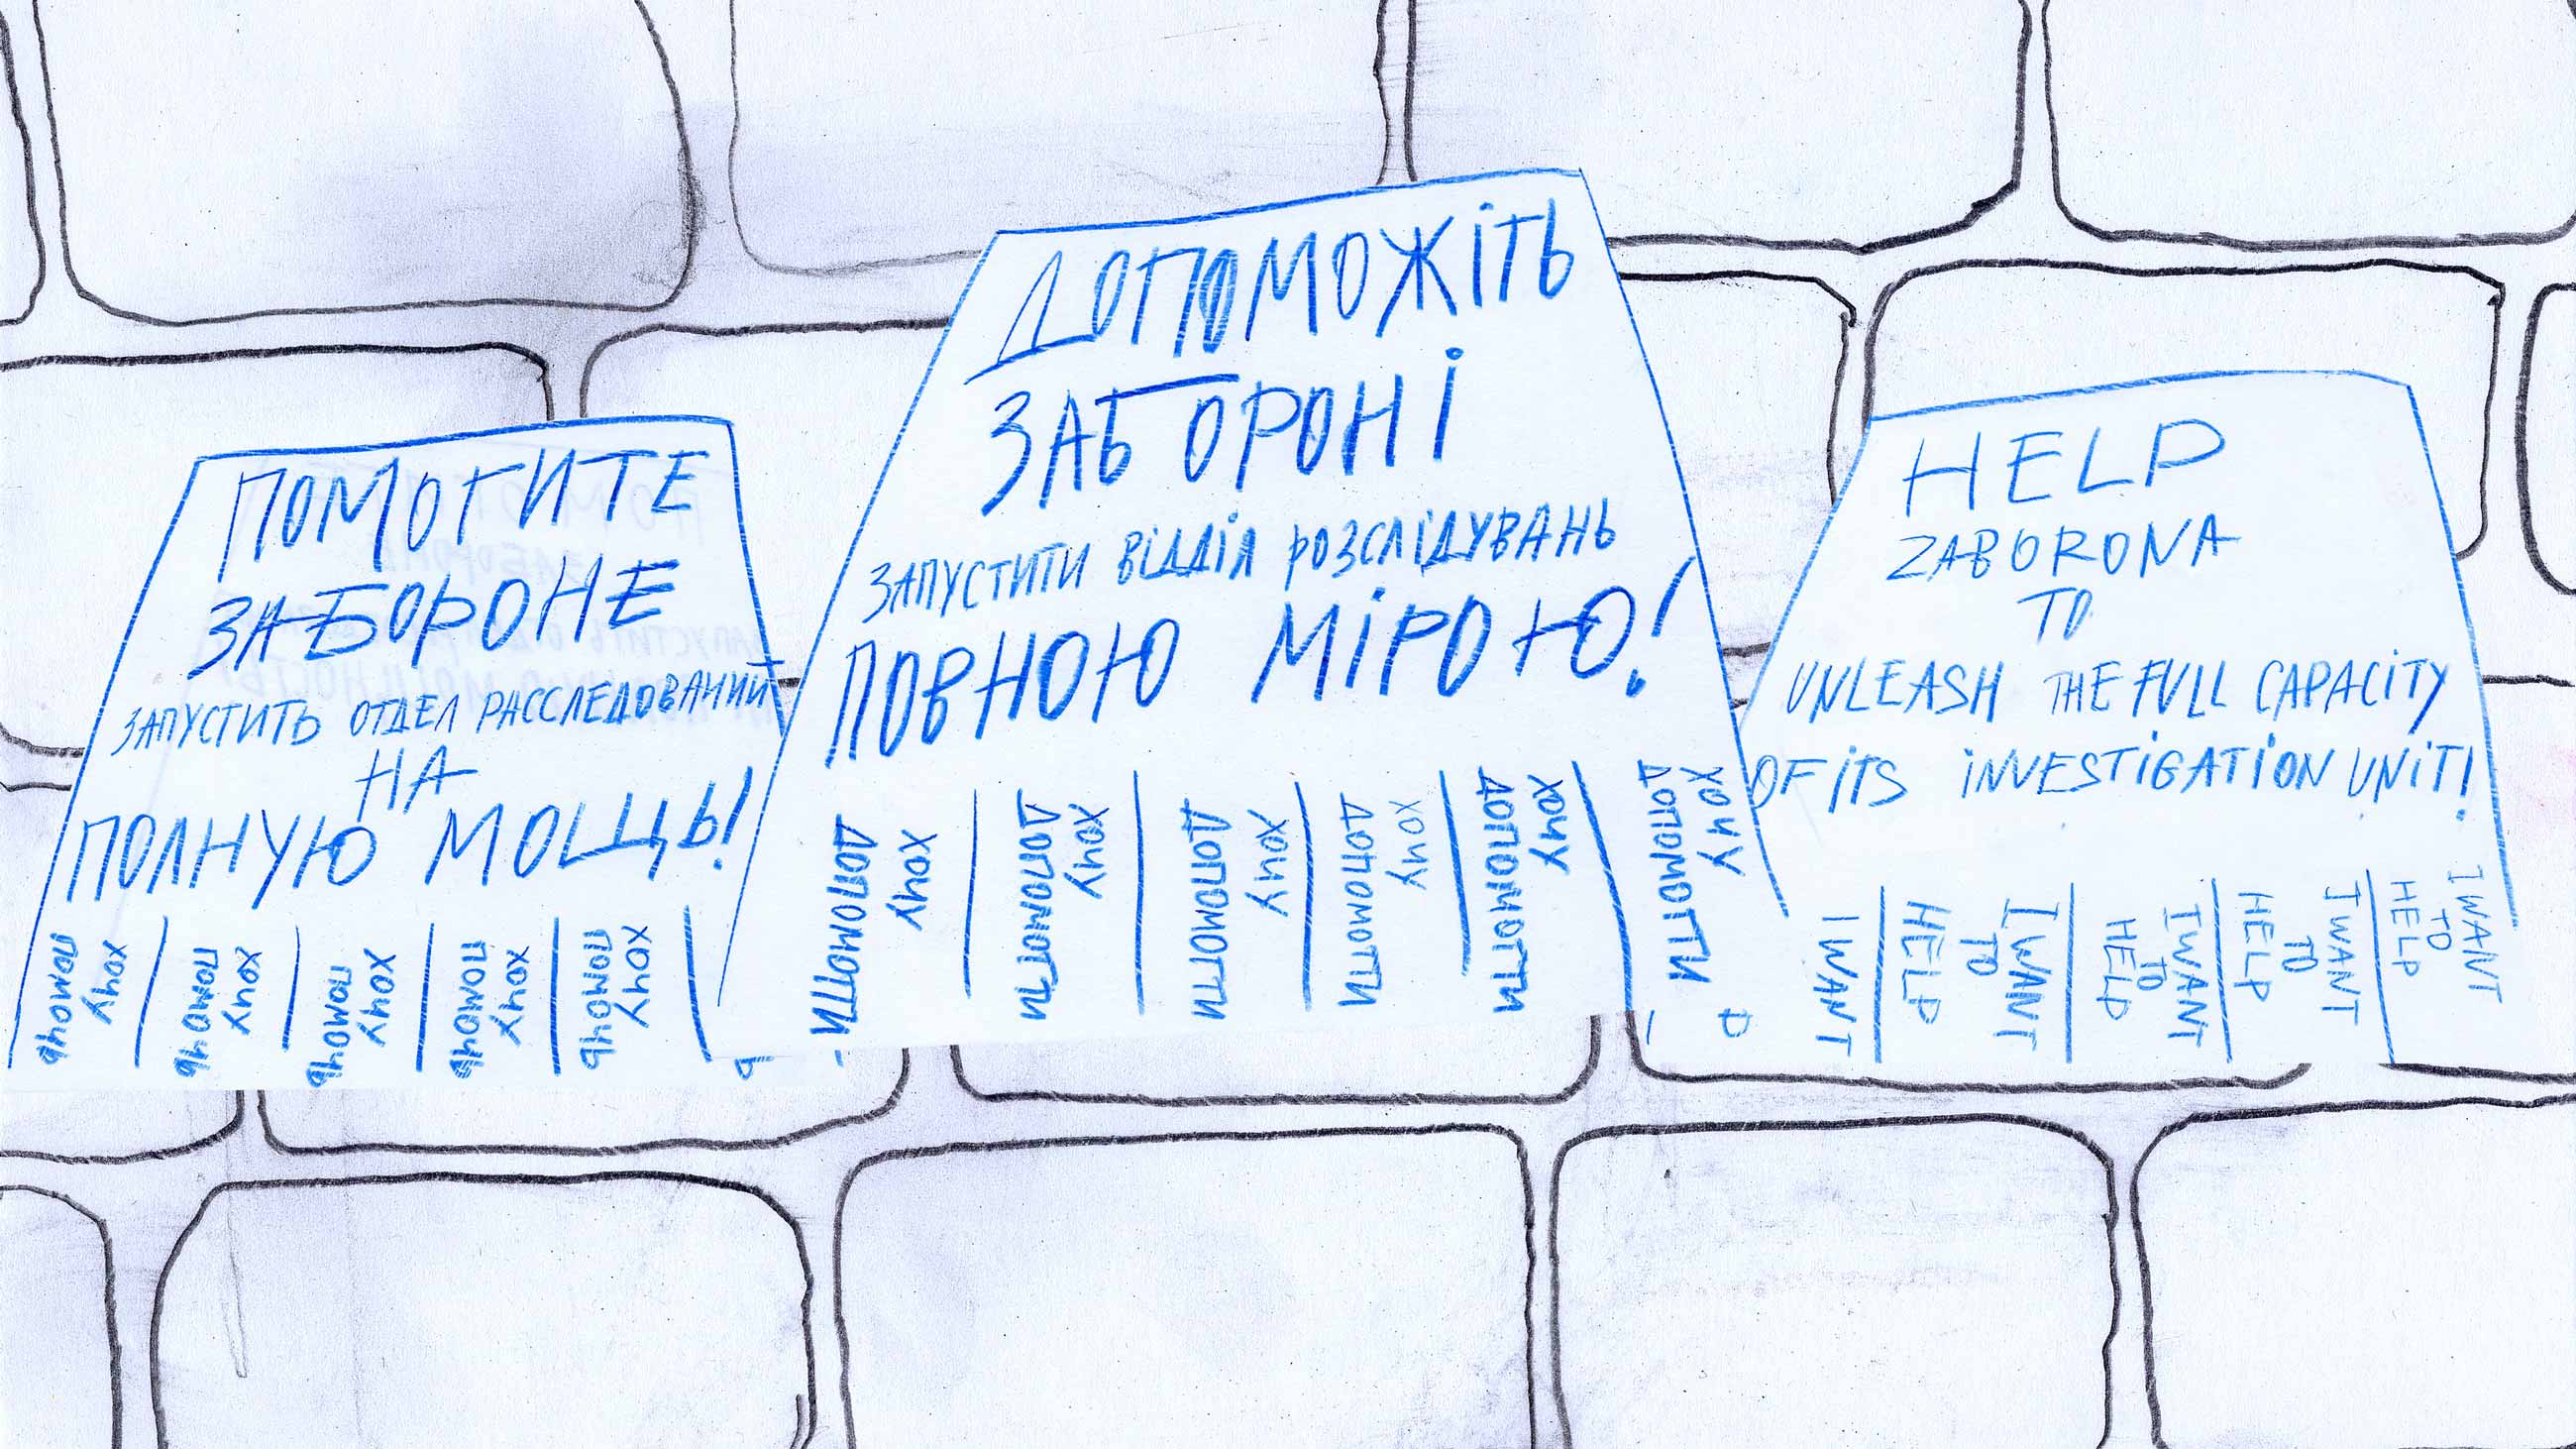 ПОМОГИТЕ
ЗАБОРОНЕ
ЗАПУСТИТЬ ОТДЕЛ РАССЛЕДОВАНИЙ
НА
ПОЛНУЮ МОЩЬ!
ХОЧУ
ПОМОЧЬ
ХОЧУ
ПОМОЧЬ
ХОЧУ
ПОМОЧЬ
ХОЧУ
ПОМОЧЬ
ХОЧУ
ПОМОЧЬ
Ь
ДОПОМОЖІТЬ
ЗАБОРОНІ
ЗАПУСТИТИ ВІДДІЛ РОЗСЛІДУВАНЬ
ПОВНОЮ МІРОЮ!
ХОЧУ
ДОПОМОГТИ
ХОЧУ
ДОПОМОГТИ
ХОЧУ
ДОПОМОГТИ
ХОЧУ
ДОПОМОГТИ
ХОЧУ
ДОПОМОГТИ
ХОЧУ
ДОПОМОГТИ
HELP
ZABORONA
TO
UNLEASH THE FULL CAPACITY
OF ITS INVESTIGATION UNIT!
P
I WANT
I WANT
TO
HELP
I WANT
TO
HELP
I WANT
TO
HELP
I WANT
TO
HELP